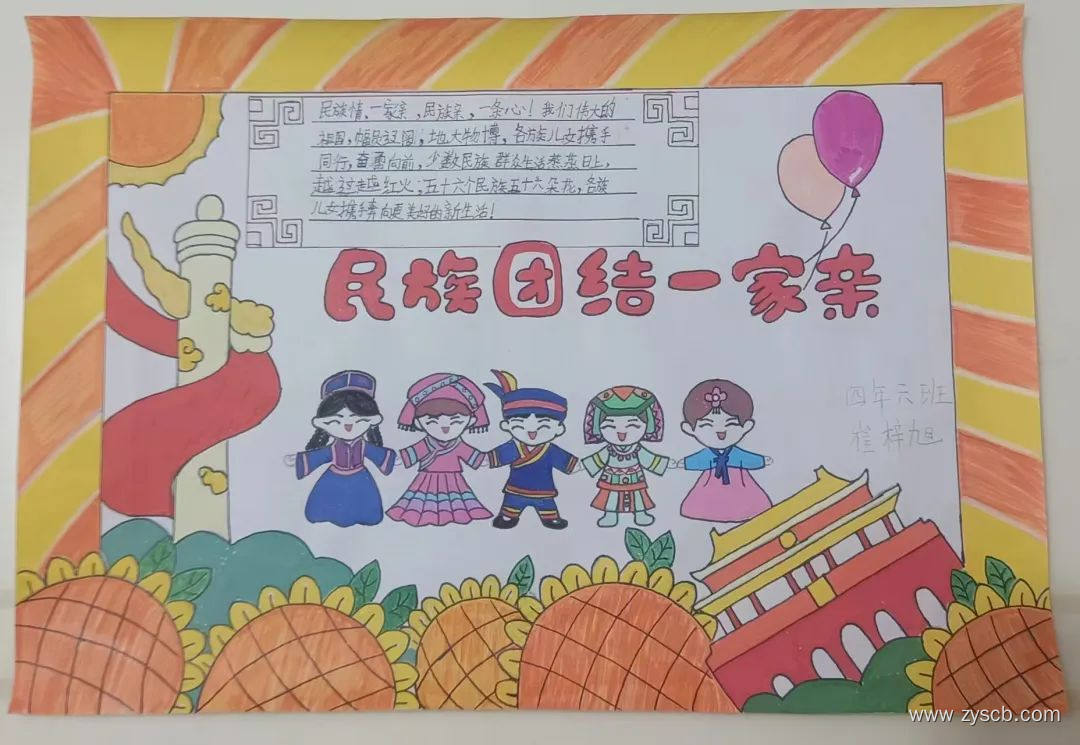 民族情，一家亲，民族亲，一条心！我们伟大的
祖国，幅员辽阔，地大物博，各族儿女携手
同行，奋勇向前，少数民族群众生活蒸蒸日上，
越过越红火；五十六个民族五十六朵花，各族
儿女携手奔向更美好的新生活！
民族团结一家亲
四年六班
崔梓旭
www.zyscb.com